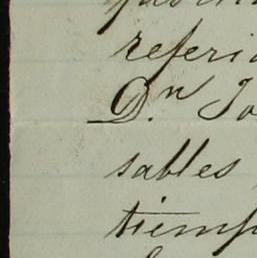 referi
D.n Jo
sables
tiemp